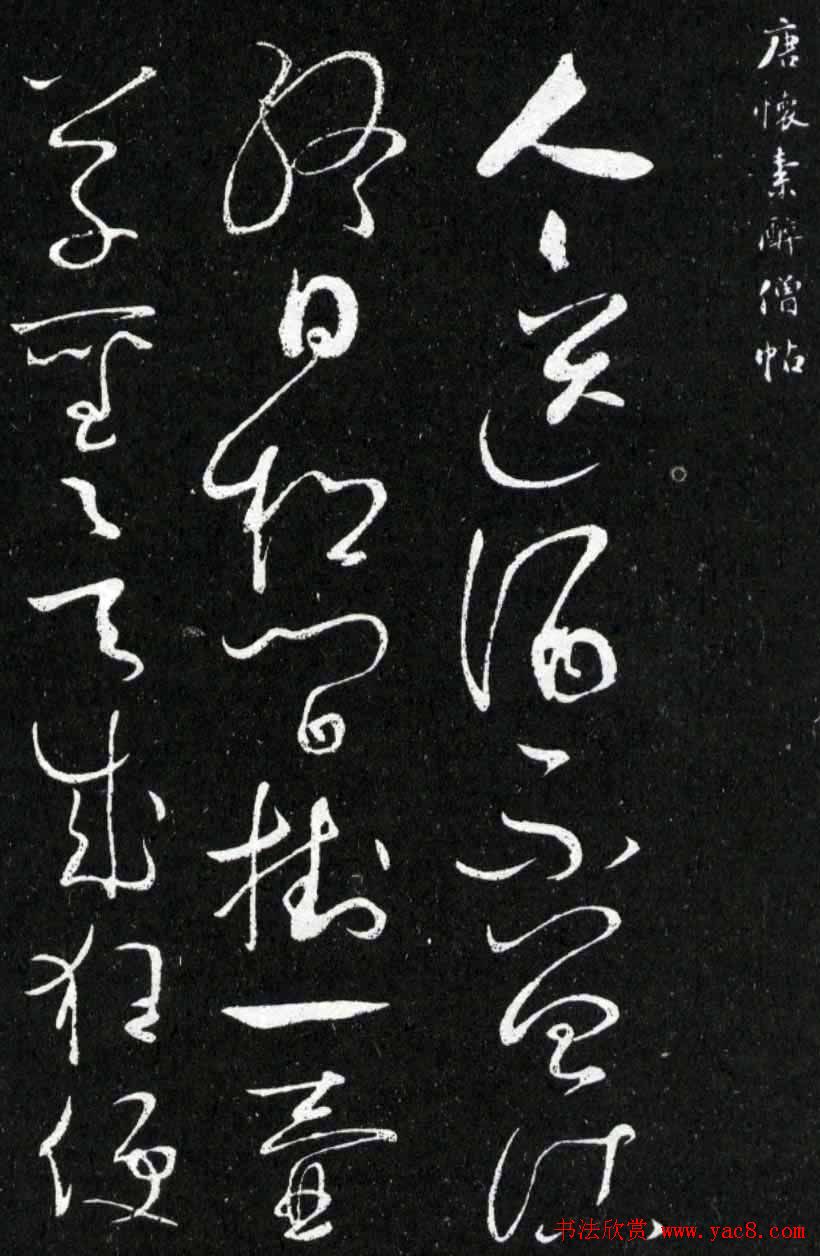 唐懷素醉僧帖
人人送酒不曾沽
終日松間掛一壺
草聖欲成狂便
书法欣赏 www.yac8.com